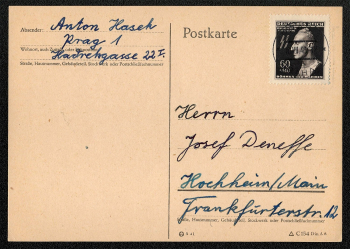 Absender: Anton Hasek
Prag 1
Wohnort, auch Zustell- oder Leitpostamt
Hadrehgasse 22 I.
Straße, Hausnummer, Gebäudeteil, Stockwerk oder Postschließfachnummer
Postkarte
DEUTSCHES REICH
60
BÖHMEN UND MÄHREN
Herrn
Josef Deneffe
Hochheim/Main
Frankfurterstr. 12
Straße, Hausnummer, Gebäudeteil, Stockwerk oder Postschließfachnummer
C 154